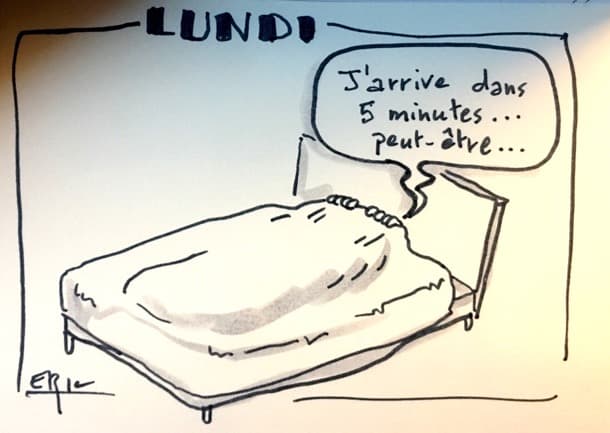 LUNDI
J'arrive dans
5 minutes...
peut-être...
ERic